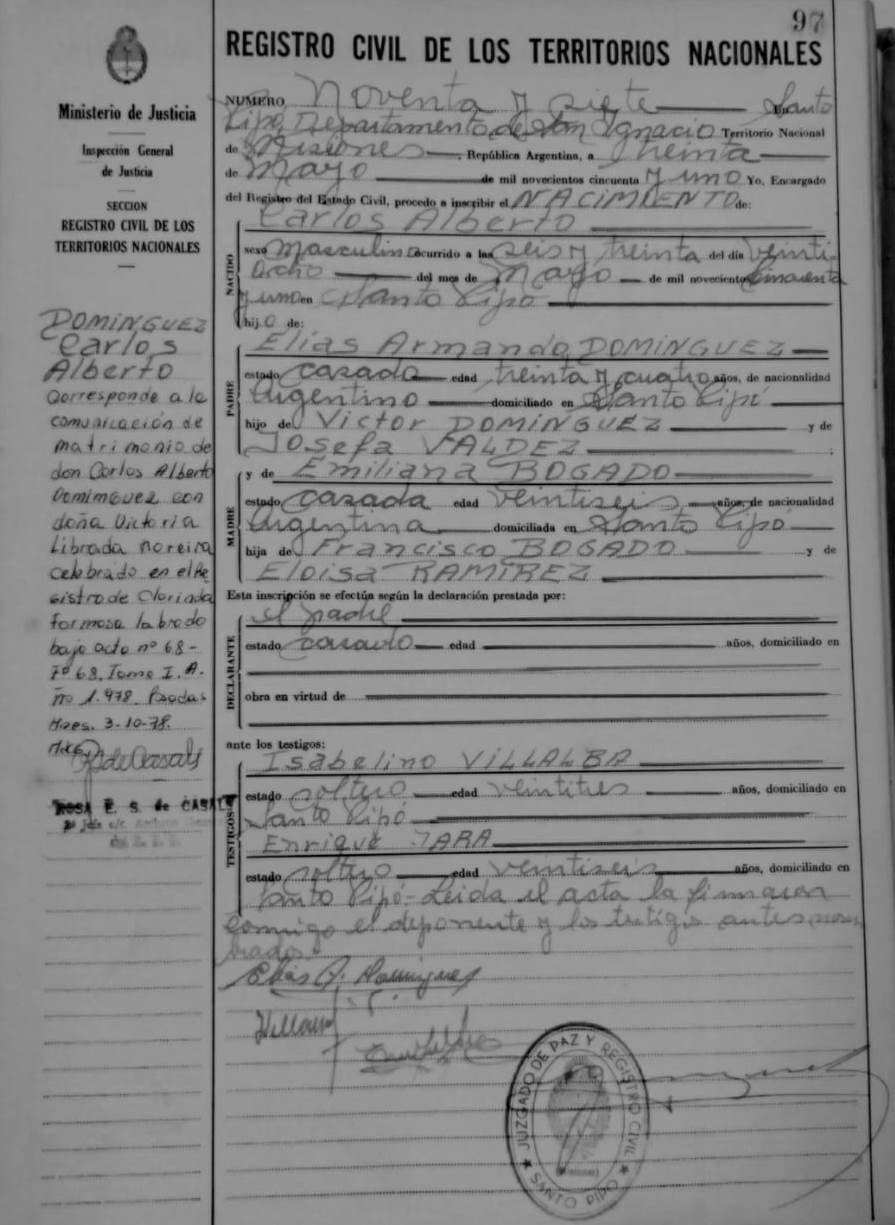 97
REGISTRO CIVIL DE LOS TERRITORIOS NACIONALES
Ministerio de Justicia
Inspección General
de Justicia
SECCION
REGISTRO CIVIL DE LOS
TERRITORIOS NACIONALES
DOMINGUEZ
Carlos
Alberto
Corresponde a la
comunicación de
matrimonio de
don Carlos Alberto
Dominguez con
doña Victoria
Librada Noreira
celebrado en el Re
gistro de Clorinda
formosa labrado
bajo acta nº 68-
Fº 68. Tomo I. A-
ño 1.978. Posadas
Mnes. 3-10-78.
ROSA E. S. de CASALS
NUMERO Noventa y siete En Santo
Pipó, Departamento de San Ignacio Territorio Nacional
de Misiones, República Argentina, a treinta
de Mayo de mil novecientos cincuenta y uno Yo, Encargado
del Registro del Estado Civil, procedo a inscribir el NACIMIENTO de:
Carlos Alberto
NACIDO
sexo Masculino ocurrido a las seis y treinta del día veinti
ocho del mes de Mayo de mil novecientos cincuenta
y uno en Santo Pipó
hijo de:
PADRE
Elías Armando DOMINGUEZ
estado casado edad treinta y cuatro años, de nacionalidad
Argentino domiciliado en Santo Pipó
hijo de Victor DOMINGUEZ y de
Josefa VALDEZ ;
MADRE
y de Emiliana BOGADO
estado casada edad veintiseis años, de nacionalidad
Argentina domiciliada en Santo Pipó
hija de Francisco BOGADO y de
Eloisa RAMIREZ
Esta inscripción se efectúa según la declaración prestada por:
DECLARANTE
el padre
estado casado edad años, domiciliado en
obra en virtud de
ante los testigos:
TESTIGOS
Isabelino VILLALBA
estado soltero edad veintitres años, domiciliado en
Santo Pipó
Enrique JARA
estado soltero edad veintiseis años, domiciliado en
Santo Pipó- Leida el acta la firmaron
conmigo el deponente y los testigos antes nom
brados
Elias A. Dominguez
JUZGADO DE PAZ Y REGISTRO CIVIL
SANTO PIPO